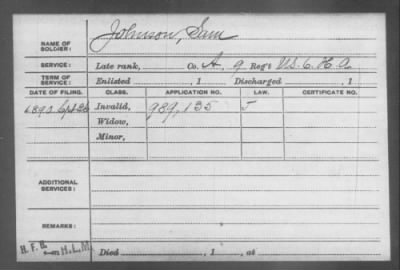 NAME OF SOLDIER: Johnson, Sam
SERVICE: Late rank, Co. A, 9 Reg't U.S.C.H.A.
TERM OF SERVICE: Enlisted , 1 Discharged , 1
DATE OF FILING. CLASS. APPLICATION NO. LAW. CERTIFICATE NO.
Invalid, 989,135
Widow,
Minor,
ADDITIONAL SERVICES:
REMARKS:
Died , 1 , at